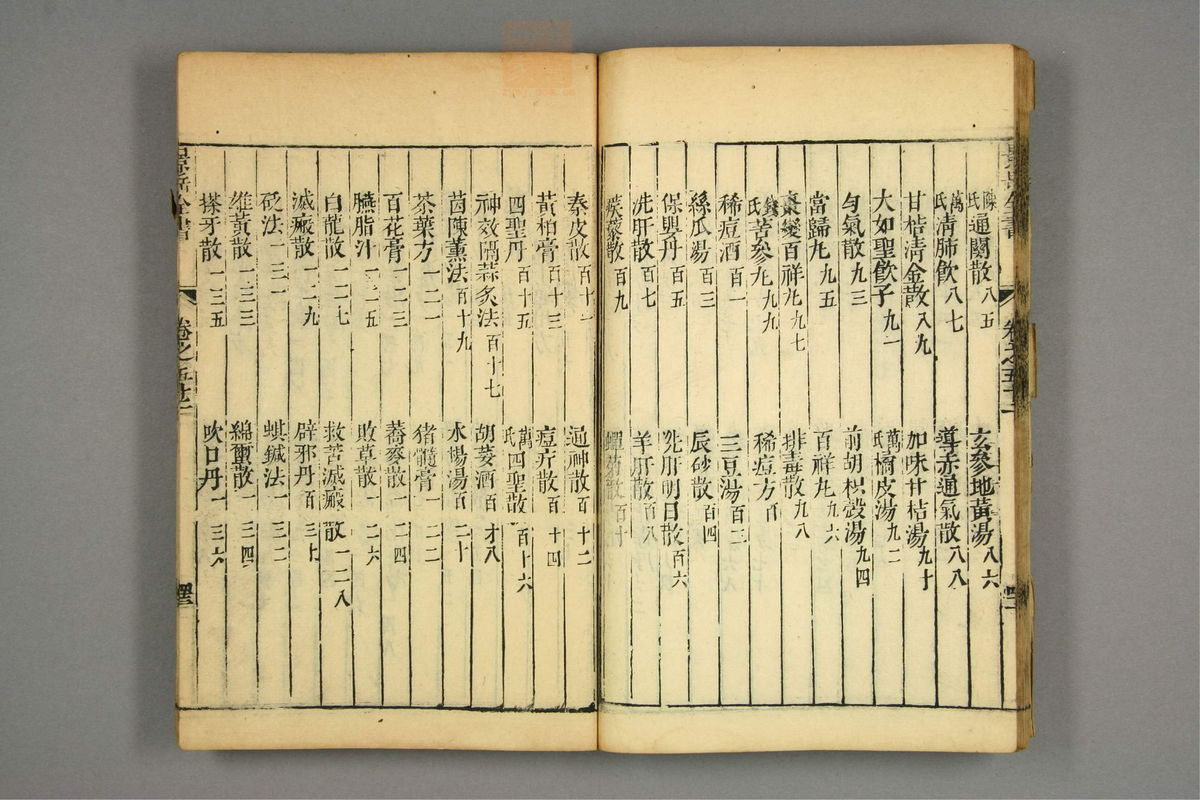 景岳全書 卷之五十
陳氏通關散八五 玄參地黃湯八六
萬氏清肺飲八七 導赤通氣散八八
甘桔清金散八九 加味甘桔湯九十
大如聖飲子九一 萬氏橘皮湯九二
勻氣散九三 前胡枳殼湯九四
當歸丸九五 百祥丸九六
棗變百祥丸九七 排毒散九八
錢氏苦參丸九九 稀痘方百
稀痘酒百一 三豆湯百二
絲瓜湯百三 辰砂散百四
保嬰丹百五 洗肝明目散百六
洗肝散百七 羊肝散百八
蒺藜散百九 蟬菊散百十
秦皮散百十一 通神散百十二
黃柏膏百十三 痘疔散百十四
四聖丹百十五 萬氏四聖散百十六
神效隔蒜炙法百十七 胡荽酒百十八
茵陳薰法百十九 水楊湯百二十
茶葉方一二一 猪髓膏一二二
百花膏一二三 蕎麥散一二四
臙脂汁一二五 敗草散一二六
白龍散一二七 救苦滅瘢散一二八
滅瘢散一二九 辟邪丹百三十
砭法一三一 蜞鍼法一三二
維黃散一三三 綿蠒散一三四
搽牙散一三五 吹口丹一三六
景岳全書 卷之五十